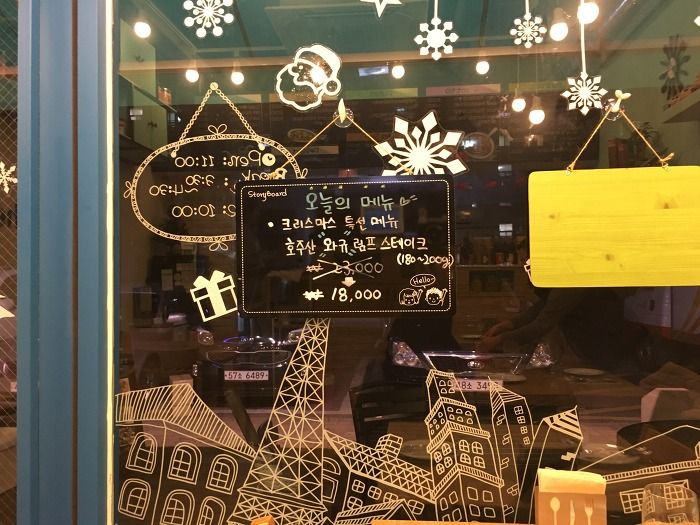 Open: 11:00
Break: 3:30
~4:30
10:00
StoryBoard
오늘의 메뉴
• 크리스마스 특선 메뉴
호주산 와규 럼프 스테이크
(180~200g)
₩ 23,000
₩ 18,000
Hello~
57소 6489